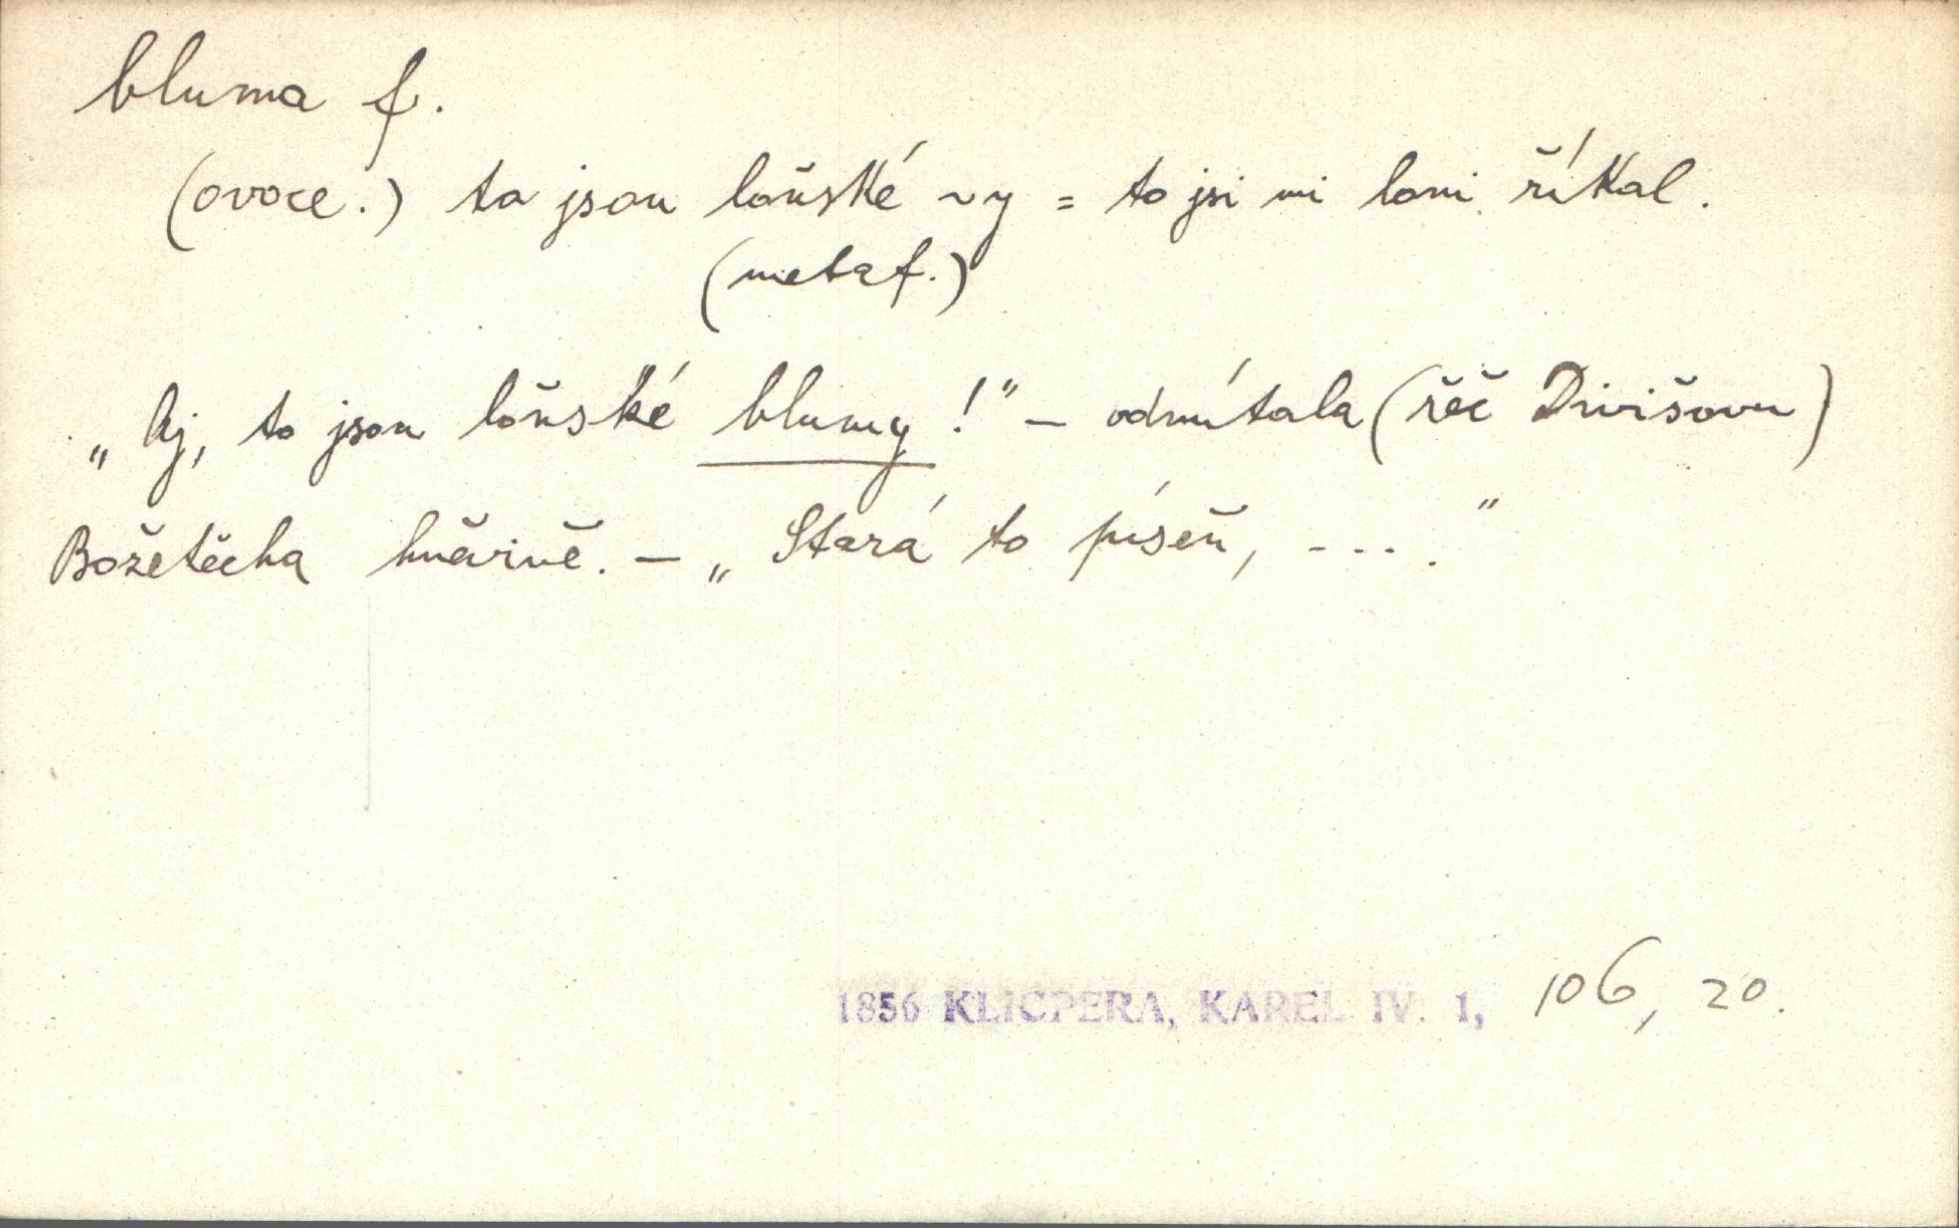 bluma f.
(ovoce.) to jsou loňské ~y = to jsi mi loni říkal.
(metaf.)
„Aj, to jsou loňské blumy!" – odmítala (řeč Divišovu)
Božetěcha hněvivě. – „Stará to píseň, - - - ."
1856 KLICPERA, KAREL IV. 1, 106, 20.